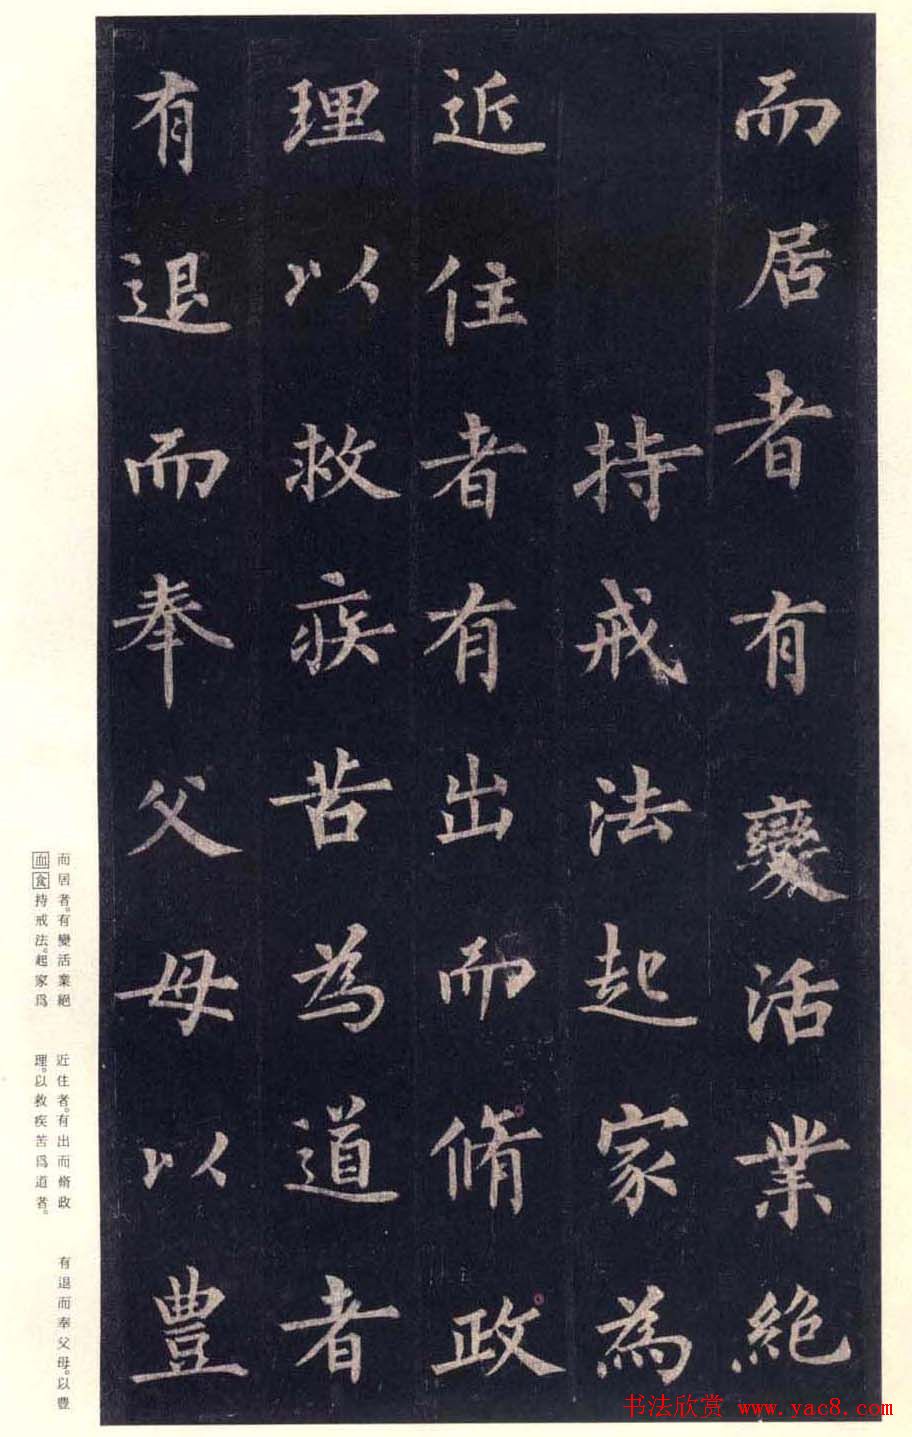 而居者有變活業絕
持戒法起家為
近住者有出而脩政
理以救疾苦為道者
有退而奉父母以豊
而居者。有變活業絕
血食持戒法。起家爲
近住者。有出而脩政
理。以救疾苦爲道者。
有退而奉父母。以豊
书法欣赏 www.yac8.com